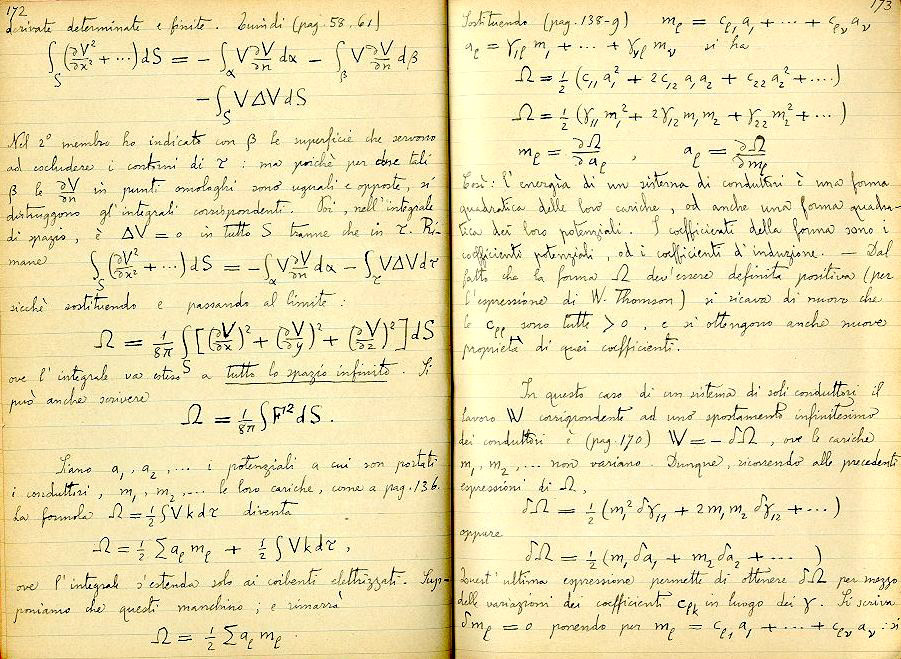 172
derivate determinate e finite. Quindi (pag. 58, 61)
∫_S (∂V²/∂x² + ⋯) dS = − ∫_α V ∂V/∂n dα − ∫_β V ∂V/∂n dβ
− ∫_S V ΔV dS
Nel 2° membro ho indicato con β le superficie che servono
ad escludere i contorni di τ : ma poichè per due tali
β le ∂V/∂n in punti omologhi sono uguali e opposte, si
distruggono gl'integrali corrispondenti. Poi, nell'integrale
di spazio, è ΔV = 0 in tutto S tranne che in τ. Ri-
mane
∫_S (∂V²/∂x² + ⋯) dS = − ∫_α V ∂V/∂n dα − ∫_τ V ΔV dτ
sicchè sostituendo e passando al limite :
Ω = 1/8π ∫_S [(∂V/∂x)² + (∂V/∂y)² + (∂V/∂z)²] dS
ove l'integrale va esteso a tutto lo spazio infinito. Si
può anche scrivere
Ω = 1/8π ∫ F² dS .
Siano a₁, a₂, … i potenziali a cui son portati
i conduttori, m₁, m₂, … le loro cariche, come a pag. 136.
La formola Ω = ½ ∫ V k dτ diventa
Ω = ½ Σ a_ρ m_ρ + ½ ∫ V k dτ ,
ove l'integrale s'estenda solo ai coibenti elettrizzati. Sup-
poniamo che questi manchino ; e rimarrà
Ω = ½ Σ a_ρ m_ρ .
173
Sostituendo (pag. 138-9) m_ρ = c_ρ1 a₁ + ⋯ + c_ρν a_ν
a_ρ = γ_1ρ m₁ + ⋯ + γ_νρ m_ν si ha
Ω = ½ (c₁₁ a₁² + 2c₁₂ a₁ a₂ + c₂₂ a₂² + ⋯)
Ω = ½ (γ₁₁ m₁² + 2γ₁₂ m₁ m₂ + γ₂₂ m₂² + ⋯)
m_ρ = ∂Ω/∂a_ρ , a_ρ = ∂Ω/∂m_ρ
Così : l'energia di un sistema di conduttori è una forma
quadratica delle loro cariche, od anche una forma quadra-
tica dei loro potenziali. I coefficienti della forma sono i
coefficienti potenziali, od i coefficienti d'induzione. — Dal
fatto che la forma Ω dev'essere definita positiva (per
l'espressione di W. Thomson) si ricava di nuovo che
le c_ρρ sono tutte > 0 , e si ottengono anche nuove
proprietà di quei coefficienti.
In questo caso di un sistema di soli conduttori il
lavoro W corrispondente ad uno spostamento infinitesimo
dei conduttori è (pag. 170) W = − δΩ , ove le cariche
m₁, m₂, … non variano. Dunque, ricorrendo alle precedenti
espressioni di Ω,
δΩ = ½ (m₁² δγ₁₁ + 2m₁ m₂ δγ₁₂ + ⋯)
oppure
δΩ = ½ (m₁ δa₁ + m₂ δa₂ + ⋯ )
Quest'ultima espressione permette di ottenere δΩ per mezzo
delle variazioni dei coefficienti c_ρk in luogo dei γ. Si scriva
δm_ρ = 0 ponendo per m_ρ = c_ρ1 a₁ + ⋯ + c_ρν a_ν : si